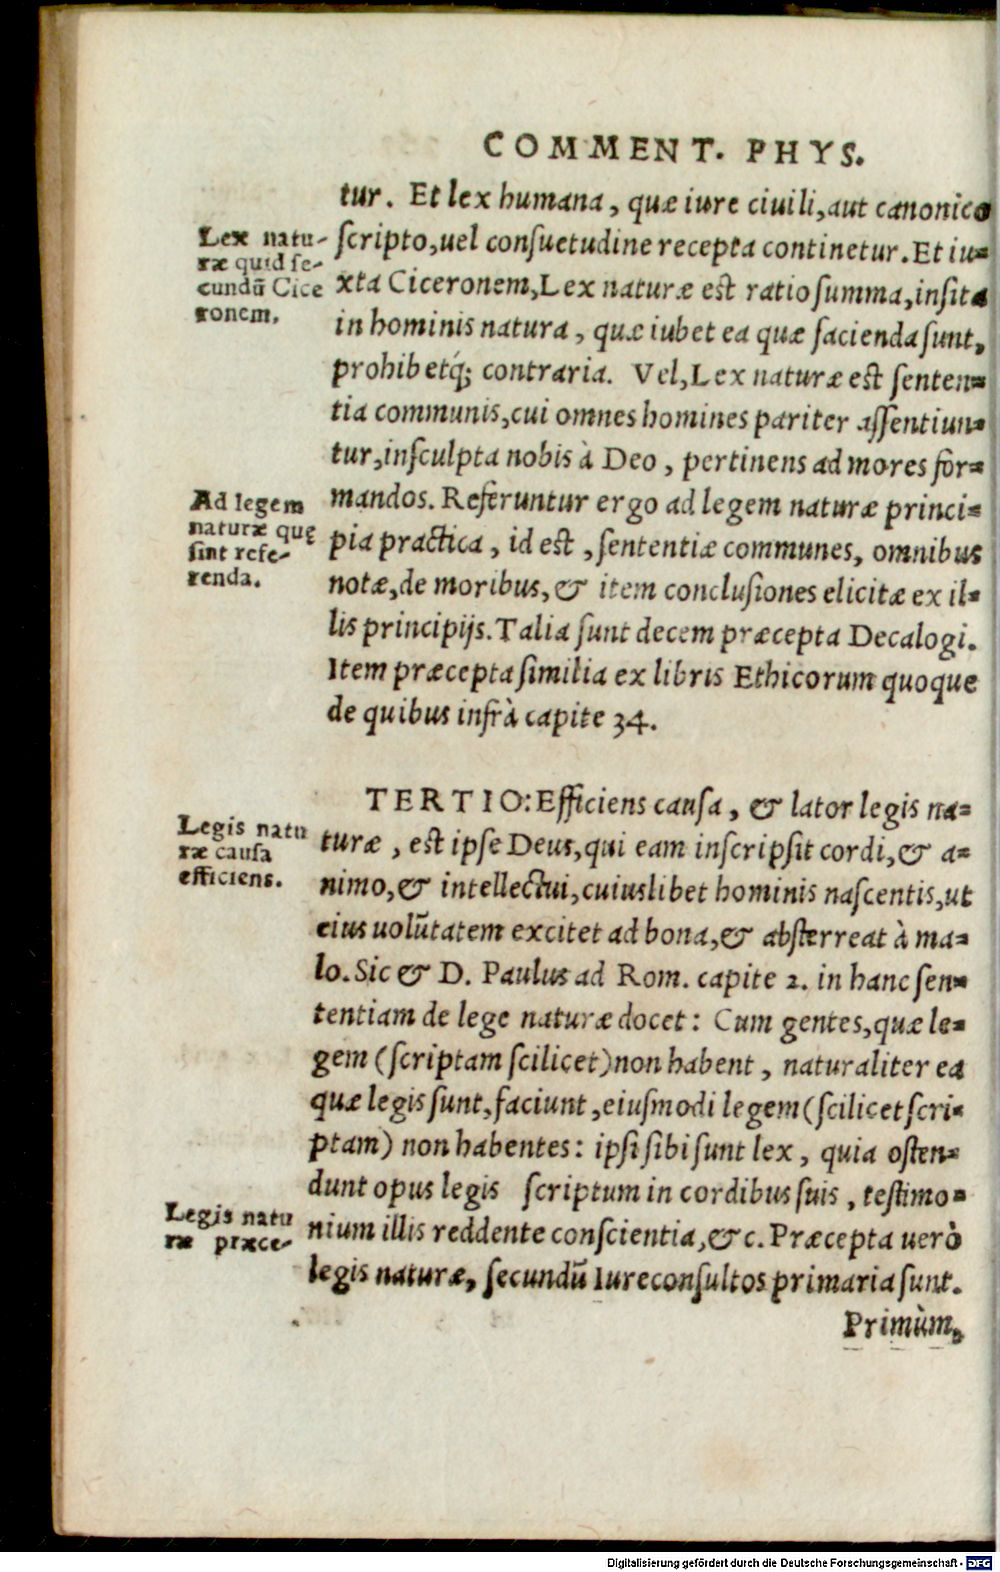 COMMENT. PHYS.
tur. Et lex humana, quæ iure ciuili, aut canonico
Lex natu-
ræ quid se-
cundũ Cice
ronem.
scripto, uel consuetudine recepta continetur. Et iu-
xta Ciceronem, Lex naturæ est ratio summa, insita
in hominis natura, quæ iubet ea quæ facienda sunt,
prohibetq́; contraria. Vel, Lex naturæ est senten-
tia communis, cui omnes homines pariter assentiun-
tur, insculpta nobis à Deo, pertinens ad mores for-
Ad legem
naturæ quę
sint refe-
renda.
mandos. Referuntur ergo ad legem naturæ princi-
pia practica, id est, sententiæ communes, omnibus
notæ, de moribus, & item conclusiones elicitæ ex il-
lis principijs. Talia sunt decem præcepta Decalogi.
Item præcepta similia ex libris Ethicorum quoque
de quibus infrà capite 34.
TERTIO: Efficiens causa, & lator legis na-
Legis natu
ræ causa
efficiens.
turæ, est ipse Deus, qui eam inscripsit cordi, & a-
nimo, & intellectui, cuiuslibet hominis nascentis, ut
eius uolũtatem excitet ad bona, & absterreat à ma-
lo. Sic & D. Paulus ad Rom. capite 2. in hanc sen-
tentiam de lege naturæ docet: Cum gentes, quæ le-
gem (scriptam scilicet) non habent, naturaliter ea
quæ legis sunt, faciunt, eiusmodi legem (scilicet scri-
ptam) non habentes: ipsi sibi sunt lex, quia osten-
dunt opus legis scriptum in cordibus suis, testimo-
Legis natu
ræ præce-
nium illis reddente conscientia, &c. Præcepta uerò
legis naturæ, secundũ Iureconsultos primaria sunt.
Primùm,
Digitalisierung gefördert durch die Deutsche Forschungsgemeinschaft - DFG